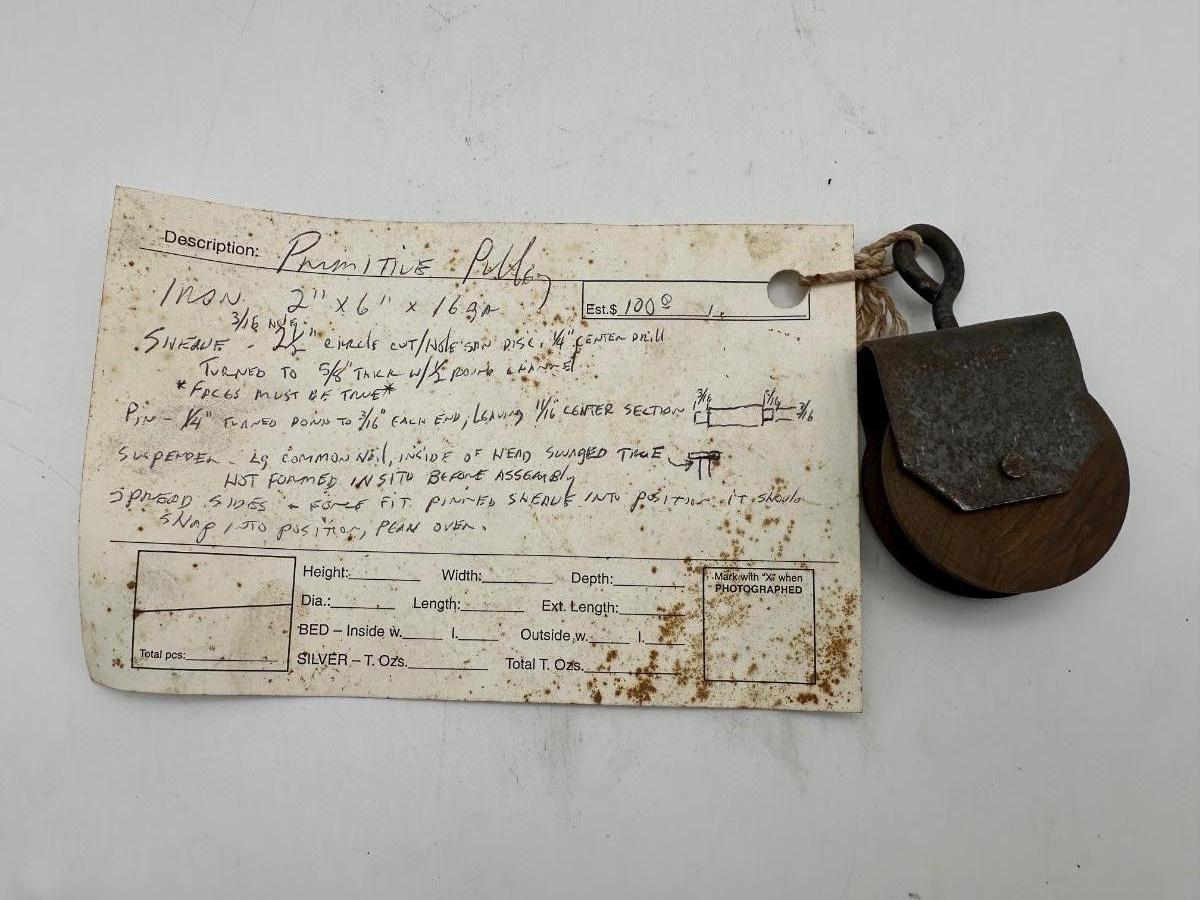 Description: PRIMITIVE Pulley
IRON 2" x 6" x 16 ga
Est.$ 100
3/16 HOLE
SHEAVE - 2½" CIRCLE CUT/HOLE SAW DISC, ¼" CENTER DRILL
TURNED TO 5/8" THICK W/ ½ ROUND CHANNEL
*FACES MUST BE TRUE*
PIN - ¼" TURNED DOWN TO 3/16" EACH END, LEAVING 11/16" CENTER SECTION
3/16 5/16 3/16
SUSPENDER - LG COMMON NAIL, INSIDE OF HEAD SWAGED TRUE
HOT FORMED IN SITU BEFORE ASSEMBLY
SPREAD SIDES - FORCE FIT PINNED SHEAVE INTO POSITION IT SHOULD
SNAP INTO POSITION, PEAN OVER.
Height: Width: Depth:
Dia.: Length: Ext. Length:
BED – Inside w. l. Outside w. l.
SILVER – T. Ozs. Total T. Ozs.
Total pcs:
Mark with "X" when
PHOTOGRAPHED